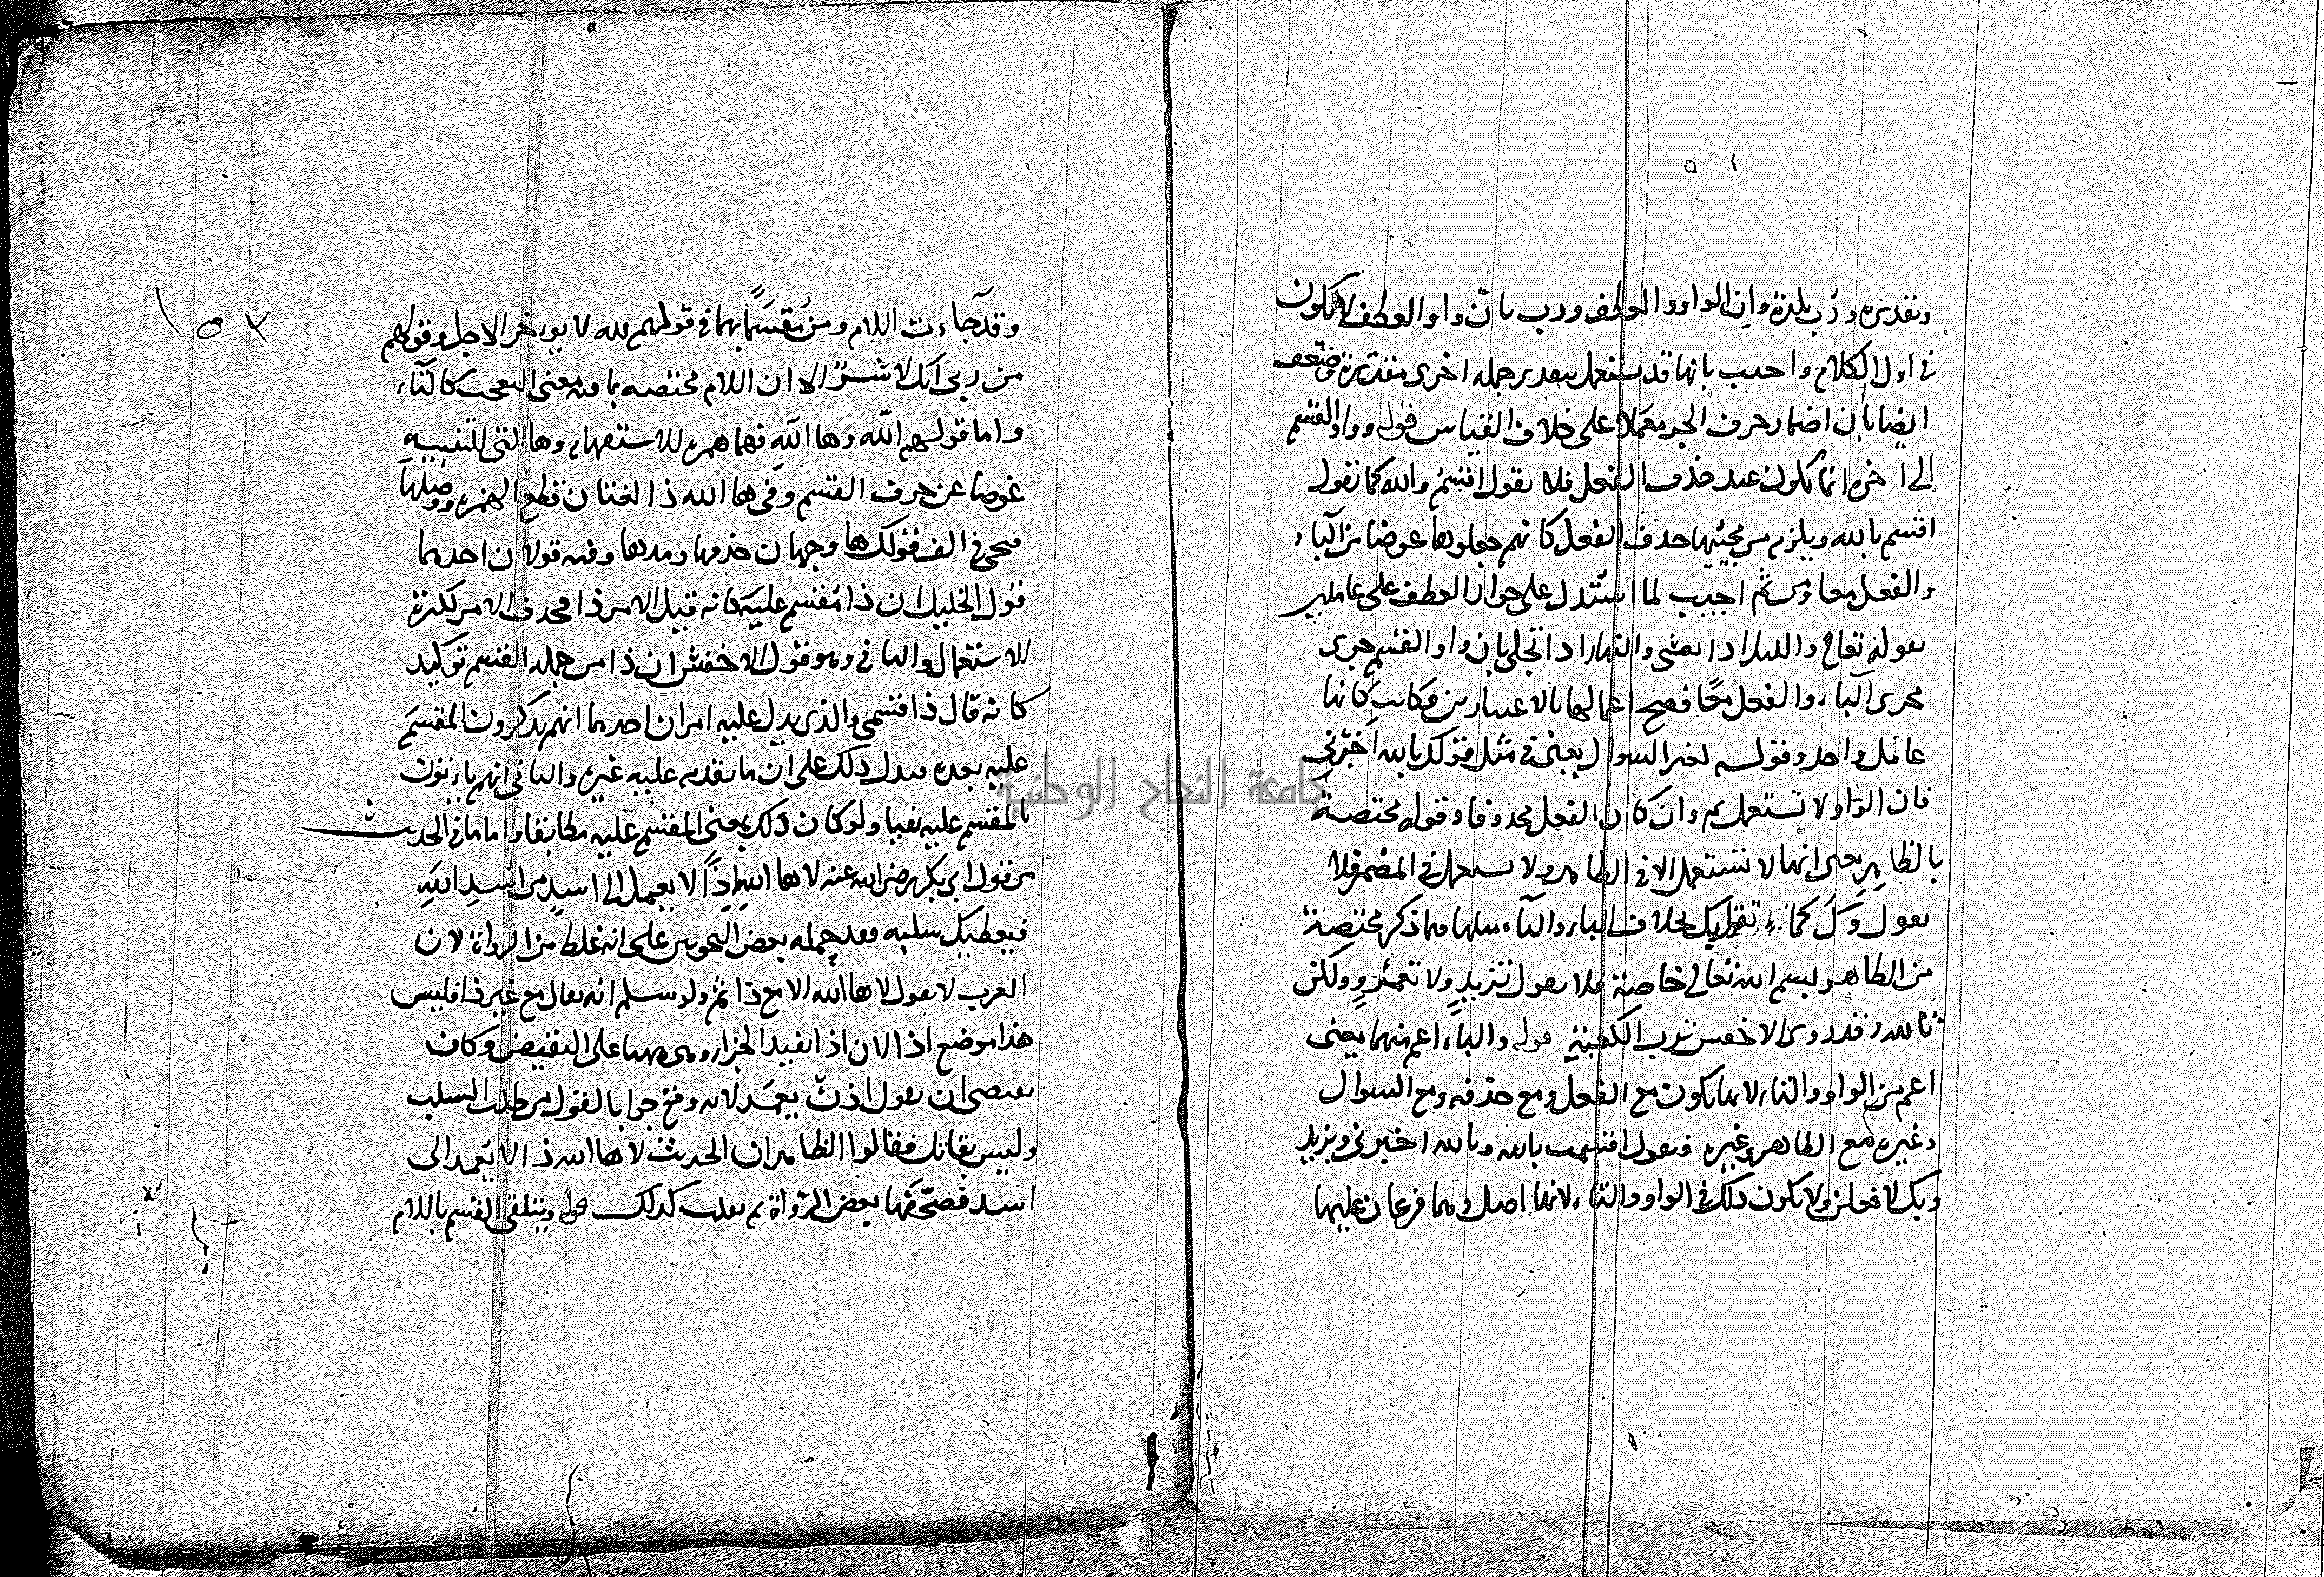 وتقديره ورب بلدة وان الواو واو العطف ورب بان واو العطف لا تكون
في اول الكلام واجيب بانها قد تستعمل بتقدير جملة اخرى متقدمة وضعف
ايضا بان اضمار حرف الجر معملا على خلاف القياس قوله وواو القسم
الى اخره انما تكون عند حذف الفعل فلا تقول اقسم والله كما تقول
اقسم بالله ويلزم من مجيئها حذف الفعل كانهم جعلوها عوضا من الباء
والفعل معا ومن ثم اجيب لما استدل على جواز العطف على عاملين
بقوله تعالى والليل اذا يغشى والنهار اذا تجلى بان واو القسم جرى
مجرى الباء والفعل معا فصح اعمالهما بالاعتبارين فكانت كانها
عامل واحد وقوله لغير السوال يعني في مثل قولك بالله اخبرني
فان الواو لا تستعمل ثم وان كان الفعل محذوفا وقوله مختصة
بالظاهر يعني انها لا تستعمل الا في الظاهر ولا تستعمل في المضمر فلا
تقول وك كما تقول بك بخلاف الباء والتاء مثلها فيما ذكر مختصة
من الظاهر باسم الله تعالى خاصة فلا تقول تزيد ولا تعمرو ولكن
تالله وقد روى الاخفش ترب الكعبة قوله والباء اعم منهما يعني
اعم من الواو والتاء لانها تكون مع الفعل ومع حذفه ومع السوال
وغيره ومع الظاهر وغيره فتقول اقسمت بالله وبالله اخبرني وبزيد
وبك لا فعلن ولا يكون ذلك في الواو والتاء لانها اصل وهما فرعان عليها
١٥٢
وقد جاءت اللام ومن مقسما بهما في قولهم لله لا يوخر الاجل وقولهم
من ربي انك لاشر الا ان اللام مختصة بما فيه معنى التعجب كالتاء
واما قولهم الله وها الله فهما همزة للاستفهام وها التي للتنبيه
عوضا عن حرف القسم وفي ها الله ذا لغتان قطع الهمزة ووصلها
الف قولك ها وجهان حذفها ومدها وفيه قولان احدهما
قول الخليل ان ذا مقسم عليه كانه قيل الامر ذا فحذف الامر لكثرة
الاستعمال والثاني وهو قول الاخفش ان ذا من جملة القسم توكيد
كانه قال ذا قسمي والذي يدل عليه امران احدهما انهم يذكرون المقسم
عليه بعده فيدل ذلك على ان ما تقدم عليه غيره والثاني انهم ياتون
بالمقسم عليه نفيا ولو كان ذلك يعني المقسم عليه مطابقا واما ما في الحديث
من قول ابي بكر رضي الله عنه لا ها الله اذا لا يعمد الى اسد من اسد الله
فيعطيك سلبه فقد حمله بعض النحويين على انه غلط من الرواة لان
العرب لا تقول لا ها الله الا مع ذا ثم ولو سلم انه يقال مع غير ذا فليس
هذا موضع اذا لان اذا تفيد الجزاء وهي ههنا على النقيض وكان
يقتضي ان يقول اذن يعمد لانه وقع جوابا لقول من طلب السلب
وليس بقاتل فقالوا الظاهر ان الحديث لا ها الله ذا لا يعمد الى
اسد فصحفها بعض الرواة ثم نقلت كذلك قوله ويتلقى القسم باللام
جامعة النجاح الوطنية